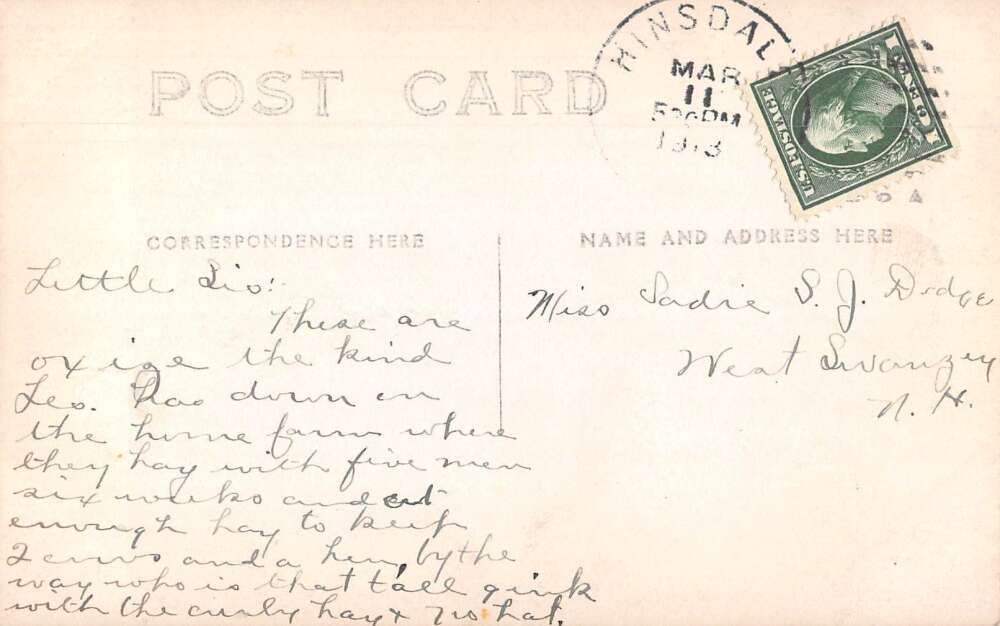 POST CARD
HINSDAL
MAR
11
1913
U.S. POSTAGE
CORRESPONDENCE HERE
NAME AND ADDRESS HERE
Little Sis:
These are
ox ige the kind
Leo. Has down on
the home farm where
they hay with five men
six weeks and cut
enough hay to keep
2 cows and a hen, by the
way who is that tall gink
with the curly hay + no hat.
Miss Sadie S. J. Dodge
West Swanzey
N. H.